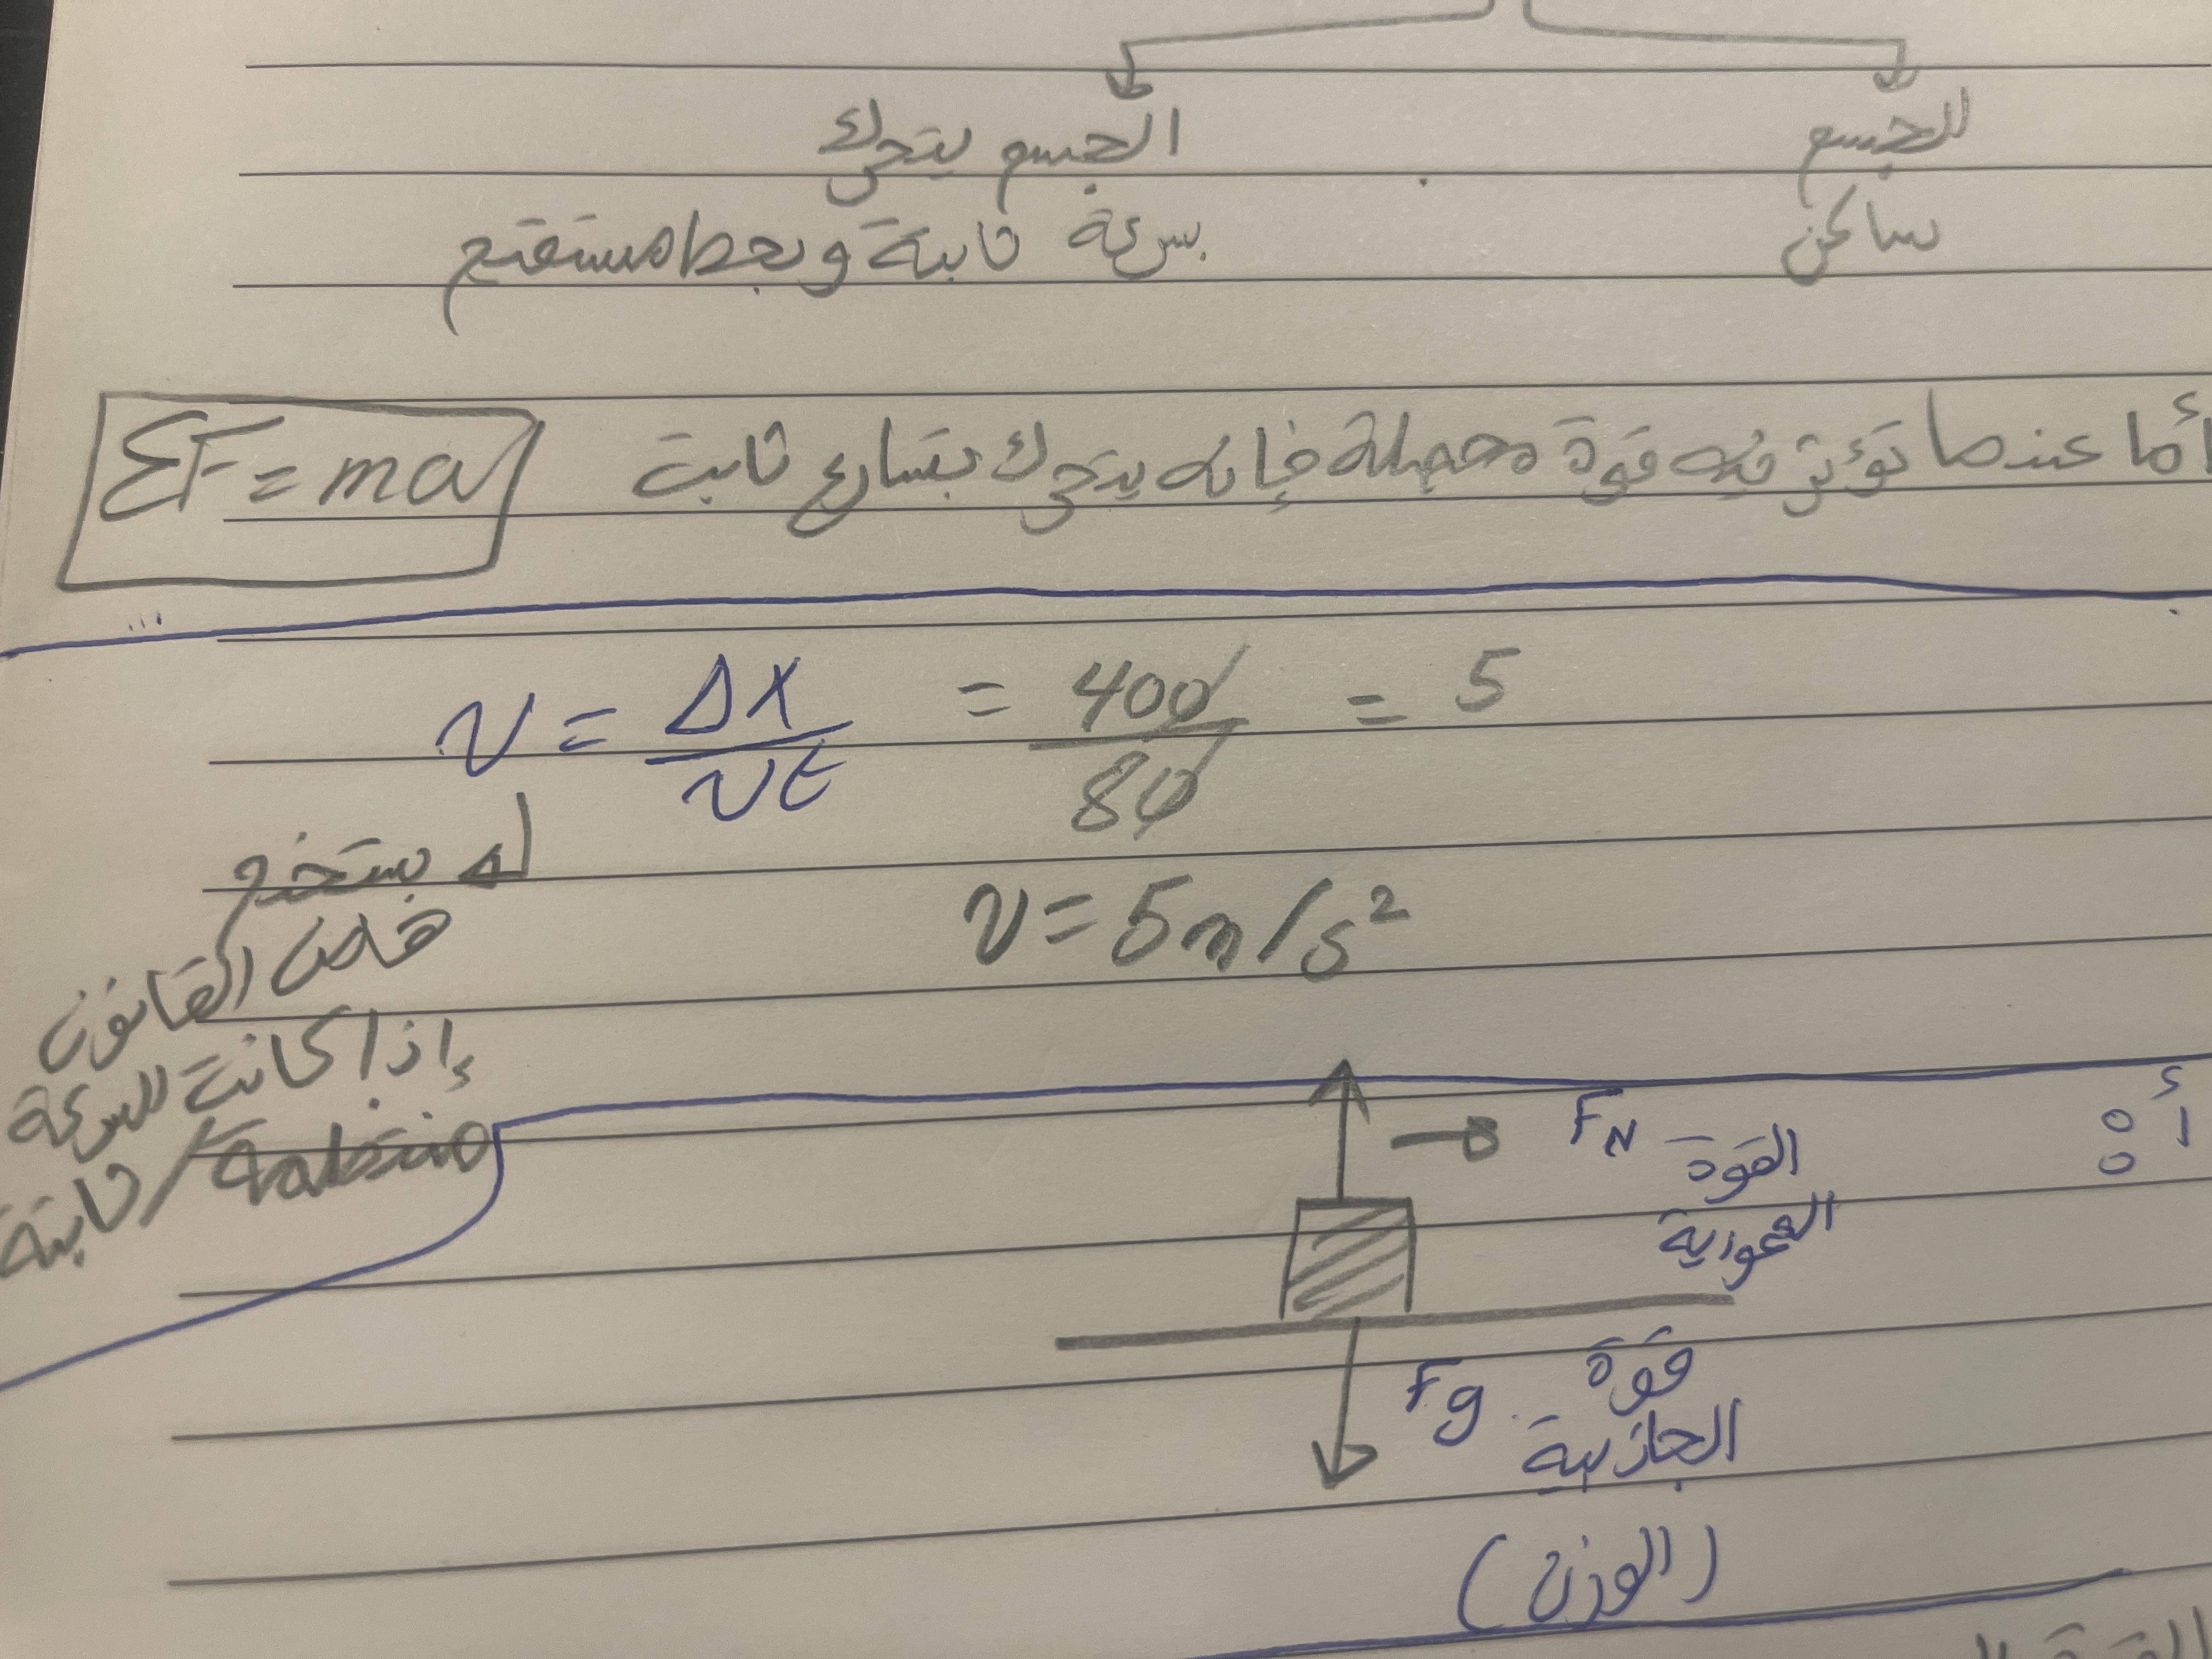 الجسم
ساكن
الجسم يتحرك
بسرعة ثابتة وبخط مستقيم
أما عندما تؤثر فيه قوة محصلة فإنه يتحرك بتسارع ثابت
ΣF = ma
v = Δx / vt = 400 / 80 = 5
v = 5m/s²
يستخدم
هذا القانون
إذا كانت السرعة
منتظمة / ثابتة
أ
FN القوة
العمودية
Fg قوة
الجاذبية
(الوزن)